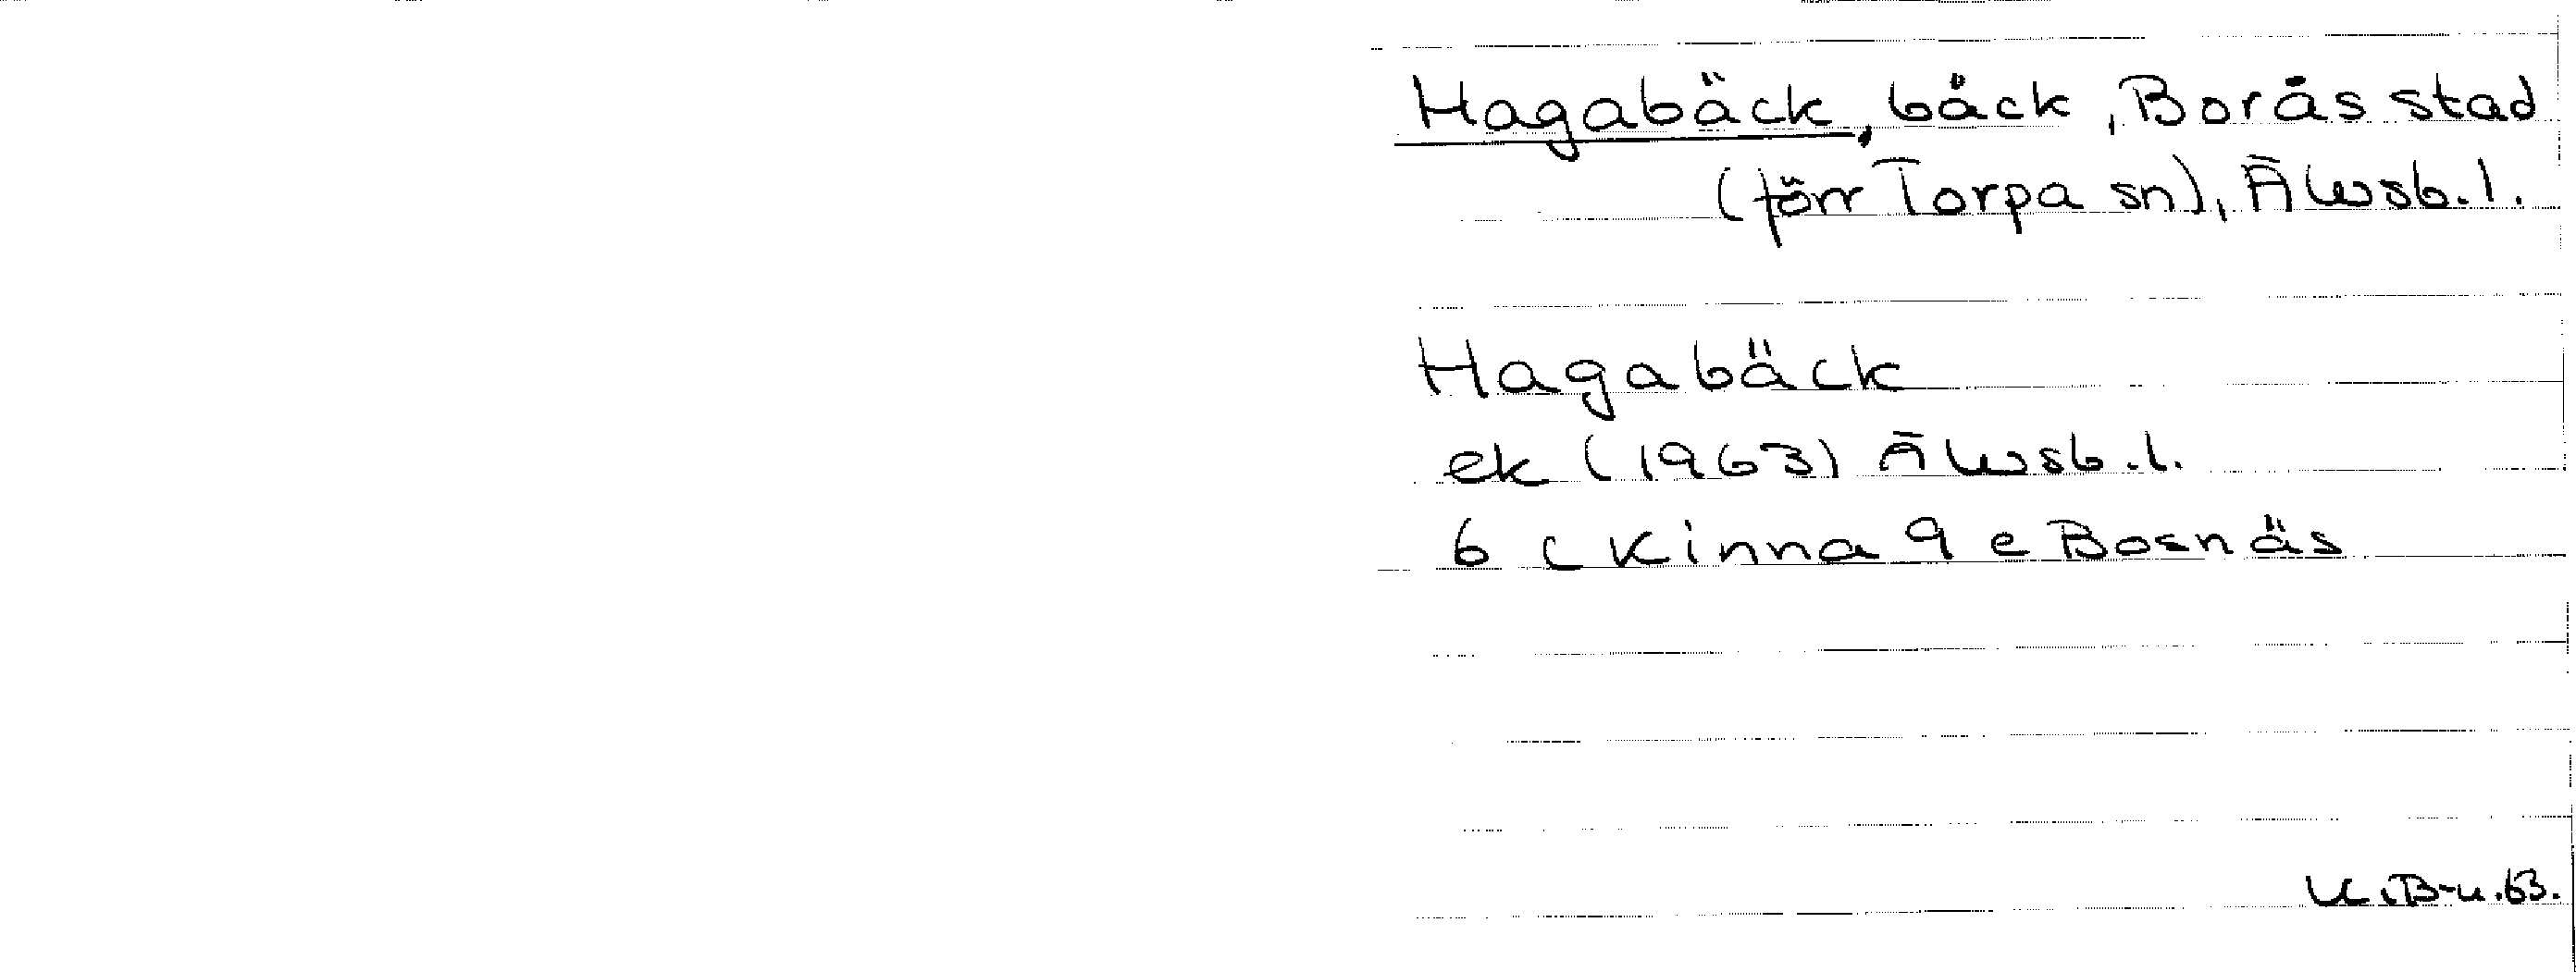 Hagabäck, bäck, Borås stad
(förr Torpa sn), Älvsb. l.
Hagabäck
ek (1963) Älvsb. l.
6 C Kinna 9 e Bosnäs
U.B-u.63.